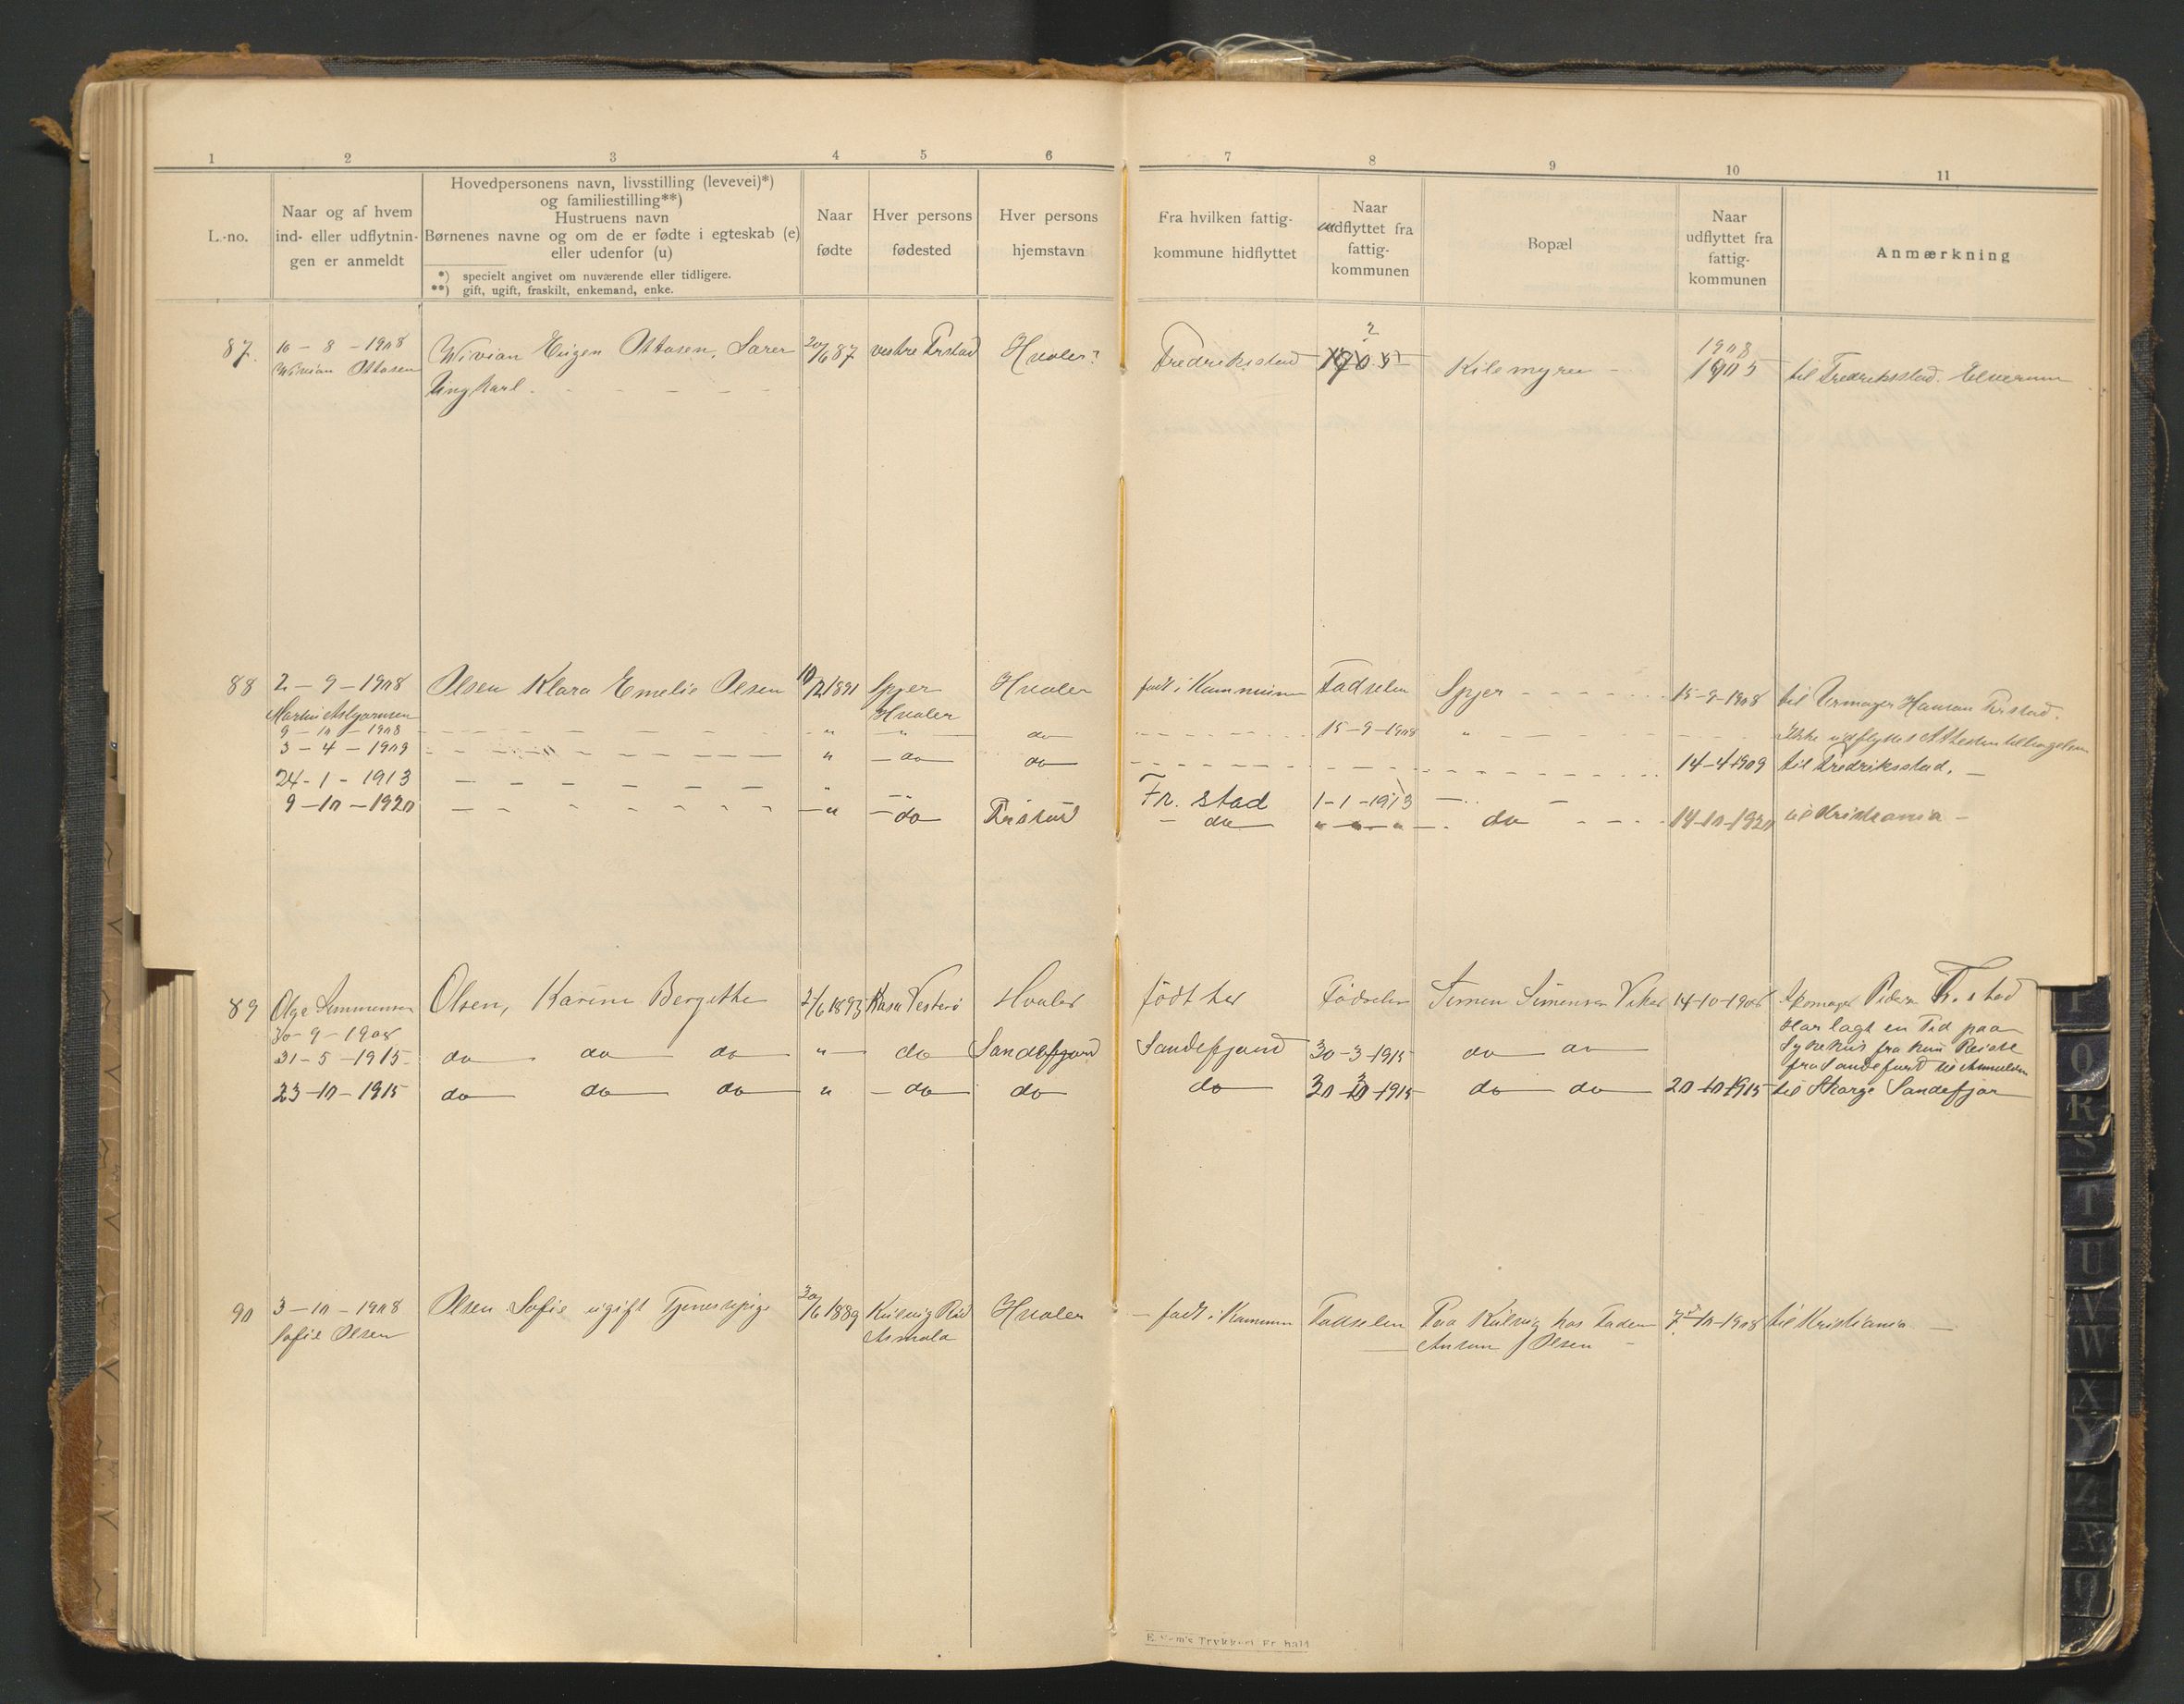 1 2 3 4 5 6 7 8 9 10 11
L.-no.
Naar og af hvem
ind- eller udflytnin-
gen er anmeldt
Hovedpersonens navn, livsstilling (levevei)*)
og familiestilling**)
Hustruens navn
Børnenes navne og om de er fødte i egteskab (e)
eller udenfor (u)
*) specielt angivet om nuværende eller tidligere.
**) gift, ugift, fraskilt, enkemand, enke.
Naar
fødte
Hver persons
fødested
Hver persons
hjemstavn
Fra hvilken fattig-
kommune hidflyttet
Naar
indflyttet fra
fattig-
kommunen
Bopæl
Naar
udflyttet fra
fattig-
kommunen
Anmærkning
87. 10 - 8 - 1908 Wivian Eugen Ottosen, 20/6 87 vestre Frstad Hvaler? Fredriksstad ? 1905 Kilemyren - 1908
Wivian Ottosen Ungkarl 1905 til Fredriksstad. Elverum
88 2 - 9 - 1908 Olsen Klara Emelie Olsen 10/2 1891 Spjer Hvaler født i Kommunen Fødselen Spjer 15-9-1908 til Urmager Hansen Frstad.
Hvaler
9 - 10 - 1908 " " do 15-9-1908 "
3 - 4 - 1909 " do do 14-4-1909 til Fredriksstad. -
24 - 1 - 1913 Fr. stad 1-1-1913
9 - 10 - 1920 " do Frstad do " " " do 14-10-1920 til Kristiania -
89 Olga Simmensen Olsen, Karine Bergithe 2/6 1893 Vesterø Hvaler født her Fødselen Simen Simensen Viker 14-10-1908 Fr. stad
30 - 9 - 1908 Har lagt en Tid paa
31 - 5 - 1915 do do do " do Sandefjord Sandefjord 30-3-1915 do do Sykehus fra hun Reiste
fra Sandefjord til
23 - 10 - 1915 do do do " do do do 30-3-1915 do do 20-10-1915 til Skorge Sandefjor
90 3 - 10 - 1908 Olsen Sofie ugift Tjenestepige 30/6 1889 Kilvig Rød Hvaler - født i Kommun Fødselen Paa Kilvig hos Faderen 7-10-1908 til Kristiania -
Sofie Olsen Asmalø Olsen -
P
Q
R
S
T
U
V
W
X
Y
Z
Æ
Ø